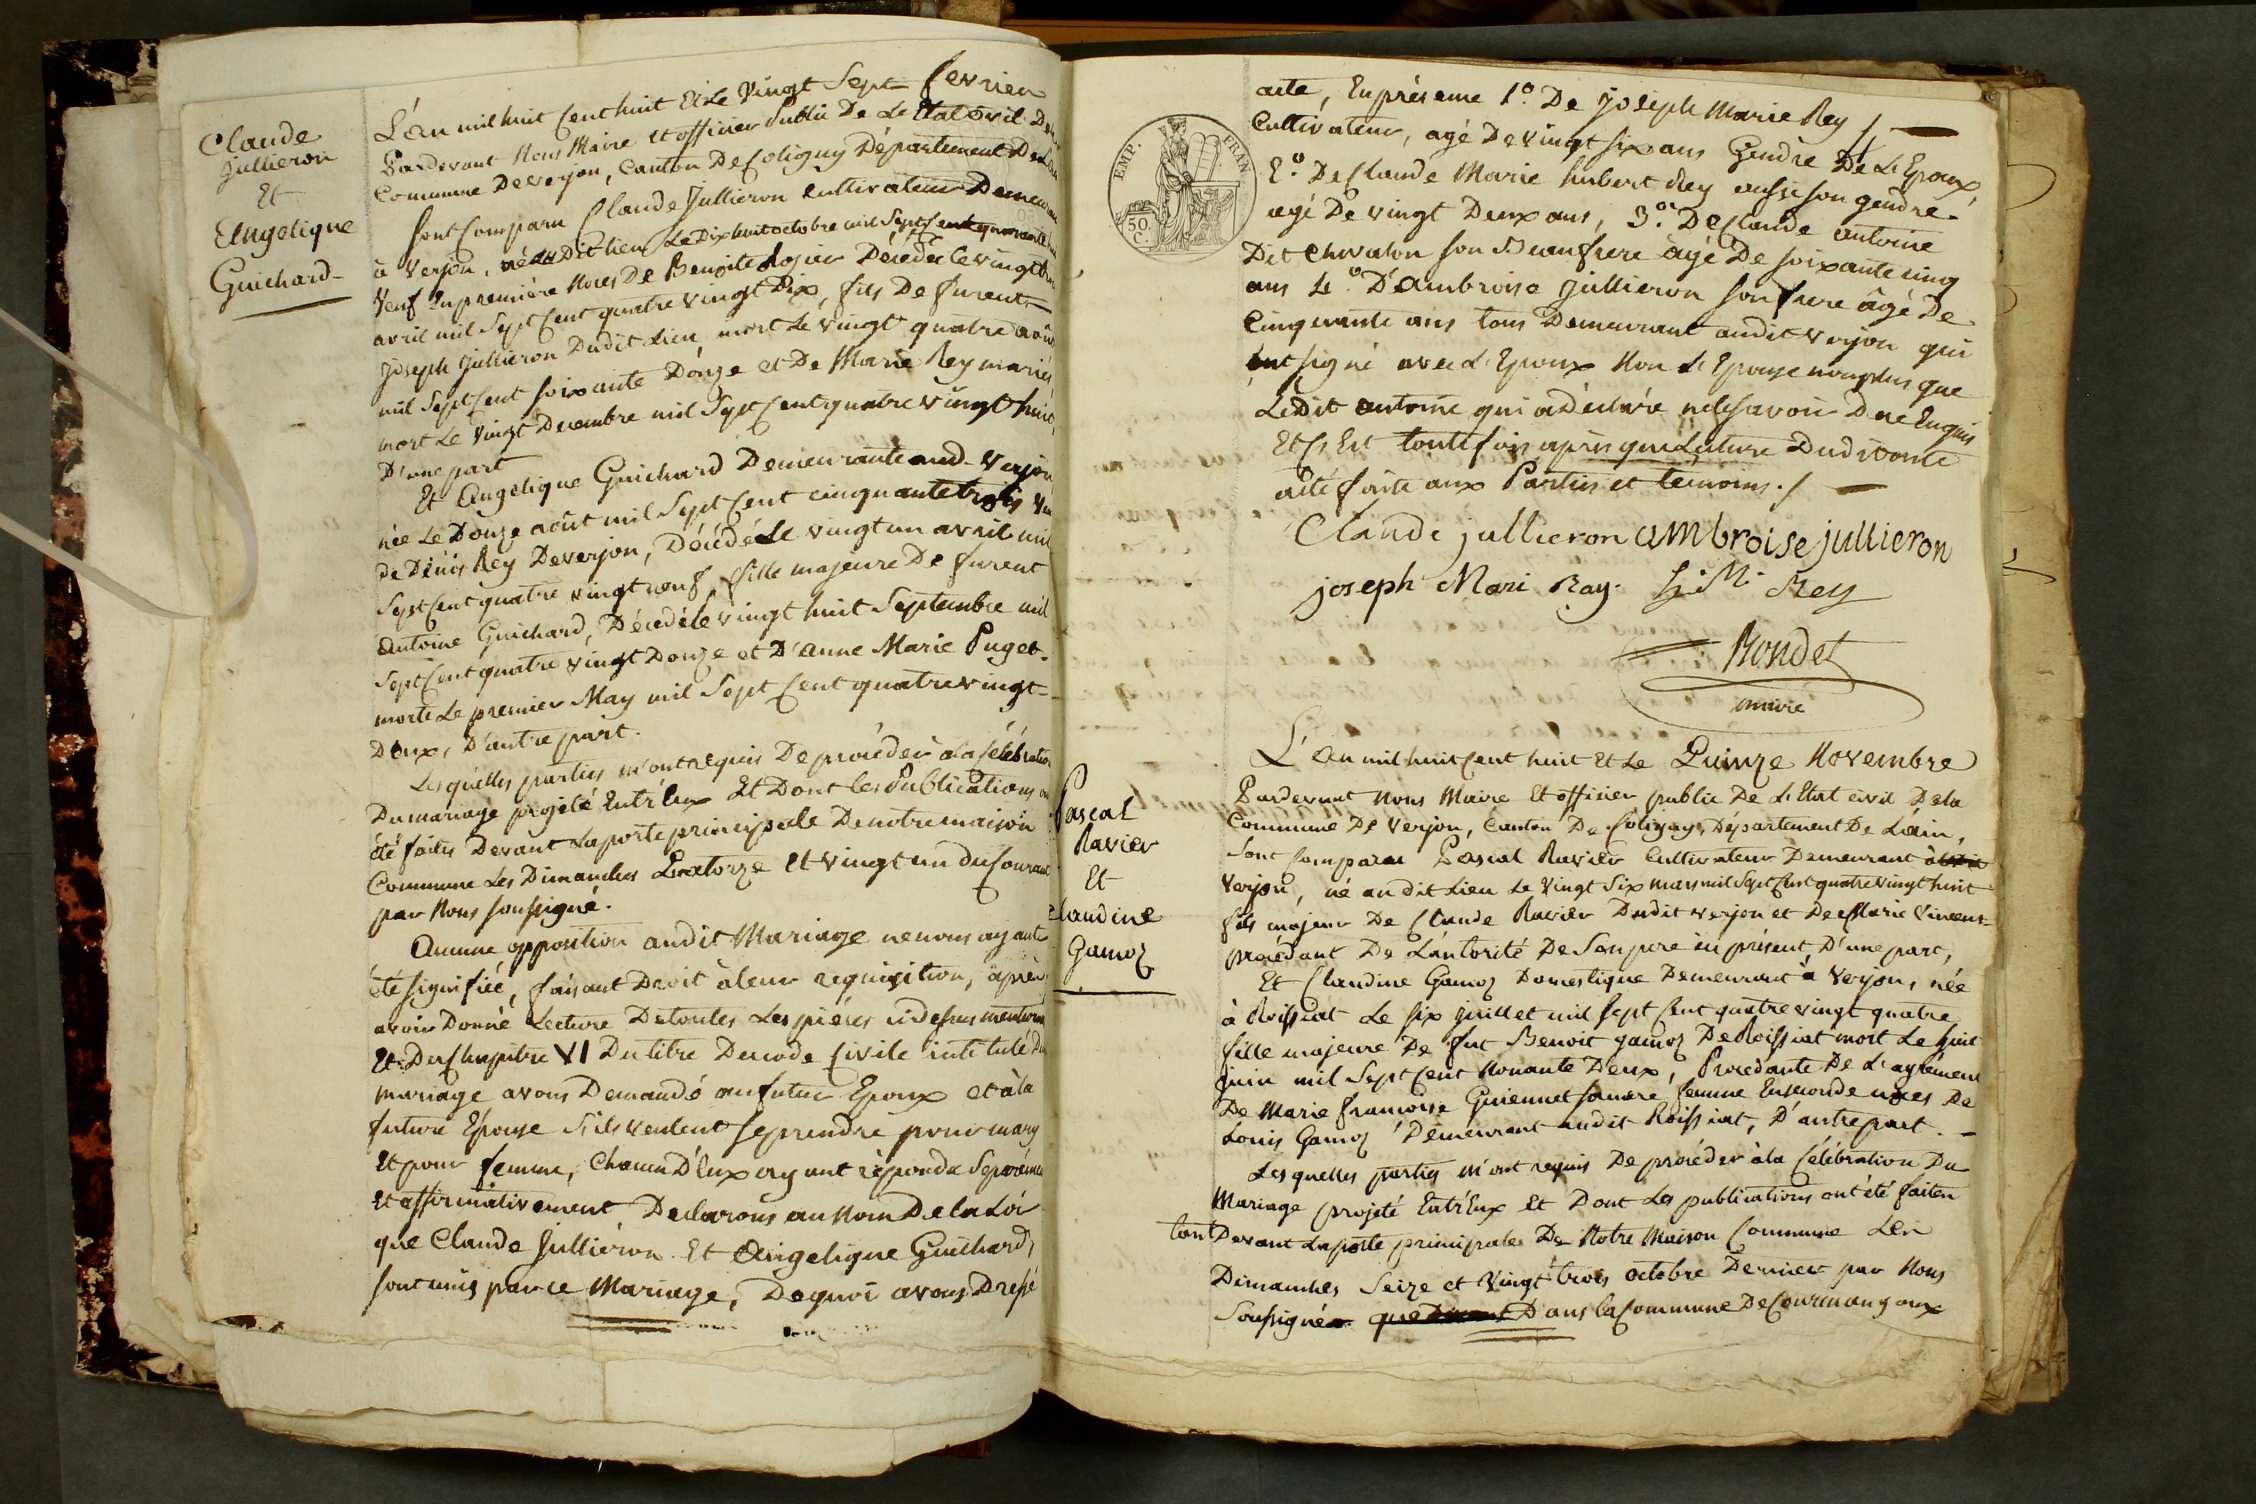 Claude
Jullieron
Et
Angelique
Guichard
L'an mil huit Cent huit Et Le Vingt Sept fevrier
Pardevant Nous Maire et officier Public De L'Etat Civil De
Commune De verjon, Canton De Coligny Département De L'ain
sont Comparu Claude Jullieron cultivateur Demeurant
à Verjon, né au Dit lieu Le Dix huit octobre mil Sept Cent quarante
Veuf En première Noces De Benoite Rosier Décédée le vingt
avril mil Sept Cent quatre vingt Dix, fils De furent
Joseph Jullieron Dudit Lieu mort Le vingt quatre août
mil Sept Cent soixante Donze et De Marie Rey mariés
mort Le Vingt Decembre mil Sept Cent quatre vingt huit,
D'une part
Et Angelique Guichard Demeurante aud. Verjon
née Le Donze août mil Sept Cent cinquante trois
de Dénis Rey De verjon, Décédé Le vingt un avril mil
Sept Cent quatre vingt neuf, fille majeure De furent
Antoine Guichard, Décédé le vingt huit Septembre mil
Sept Cent quatre vingt Donze et D'anne Marie Puget
morte Le premier May mil Sept Cent quatre vingt
Deux, D'autre part.
Les quelles parties m'ont requis De procéder a la Célébration
Du mariage projeté Entr'Eux Et Dont les Publications on
été faites Devant La porte principale De notre maison
Commune Les Dimanches Quatorze Et vingt un du Courant
par Nous soussigné.
Aucune opposition audit Mariage ne nous ayant
été signifiée, faisant Droit à leur requisition, après
avoir Donné Lecture De toutes Les pièces ci dessus mentionné
Et Du Chapitre VI Du titre Du code Civile intitulé Du
mariage avons Demandé au futur Epoux et à la
future Epouse S'ils veulent se prendre pour mary
Et pour femme, chacun D'Eux ayant répondu Séparément
Et affirmativement Declarons au Nom De la Loi
que Claude Jullieron Et Angelique Guichard,
sont unis par ce Mariage, De quoi avons Dressé
acte, En présence 1.º De Joseph Marie Rey
Cultivateur, agé De vingt six ans Gendre De L'Epoux,
2.º De Claude Marie hubert Rey aussi son gendre
agé De vingt Deux ans, 3.º De Claude antoine
Dit Chevalon son Beaufrere âgé De soixante cinq
ans 4.º D'Ambroise Jullieron son frere âgé De
Cinquante ans tous Demeurant audit Verjon qui
ont signé avec L'Epoux Non L'Epouse nonplus que
LeDit antoine qui a déclaré ne le savoir De ce Enquis
Et ce toutefois après que Lecture Dudit
acte faite aux Parties et temoins.
EMP. FRAN.
50. C.
Claude jullieron ambroise jullieron
joseph Mari Ray. Rey
Rondet
maire
Pascal
Ravier
Et
Claudine
Gamoz
L'an mil huit Cent huit Et Le Quinze Novembre
Pardevant Nous Maire Et officier public De L'Etat civil De la
Commune De Verjon, Canton De Coligny, Département De L'ain,
Sont Comparu Pascal Ravier Cultivateur Demeurant à
Verjon, né au dit Lieu Le vingt Six mars mil Sept Cent quatre vingt huit
fils majeur De Claude Ravier Dudit verjon et De Marie Vincent
procédant De L'autorité De Son pere ici présent, D'une part,
Et Claudine Gamoz Domestique Demeurant à Verjon, née
à Roissiat Le six juillet mil Sept Cent quatre vingt quatre
fille majeure De fut Benoit gamoz De Roissiat mort Le huit
juin mil Sept Cent Nonante Deux, Procédante De L'agrément
De Marie francoise Guiennet sa mere femme En seconde noces De
Louis Gamoz Demeurant audit Roissiat, D'autre part.
Les quelles parties m'ont requis De procéder à la Célébration Du
Mariage projeté Entr'Eux Et Dont Les publications ont été faiten
tant Devant La porte principale De Notre Maison Commune Les
Dimanches Seize et Vingt trois octobre Dernier par Nous
Soussigné que Dans la Commune De Courmangoux